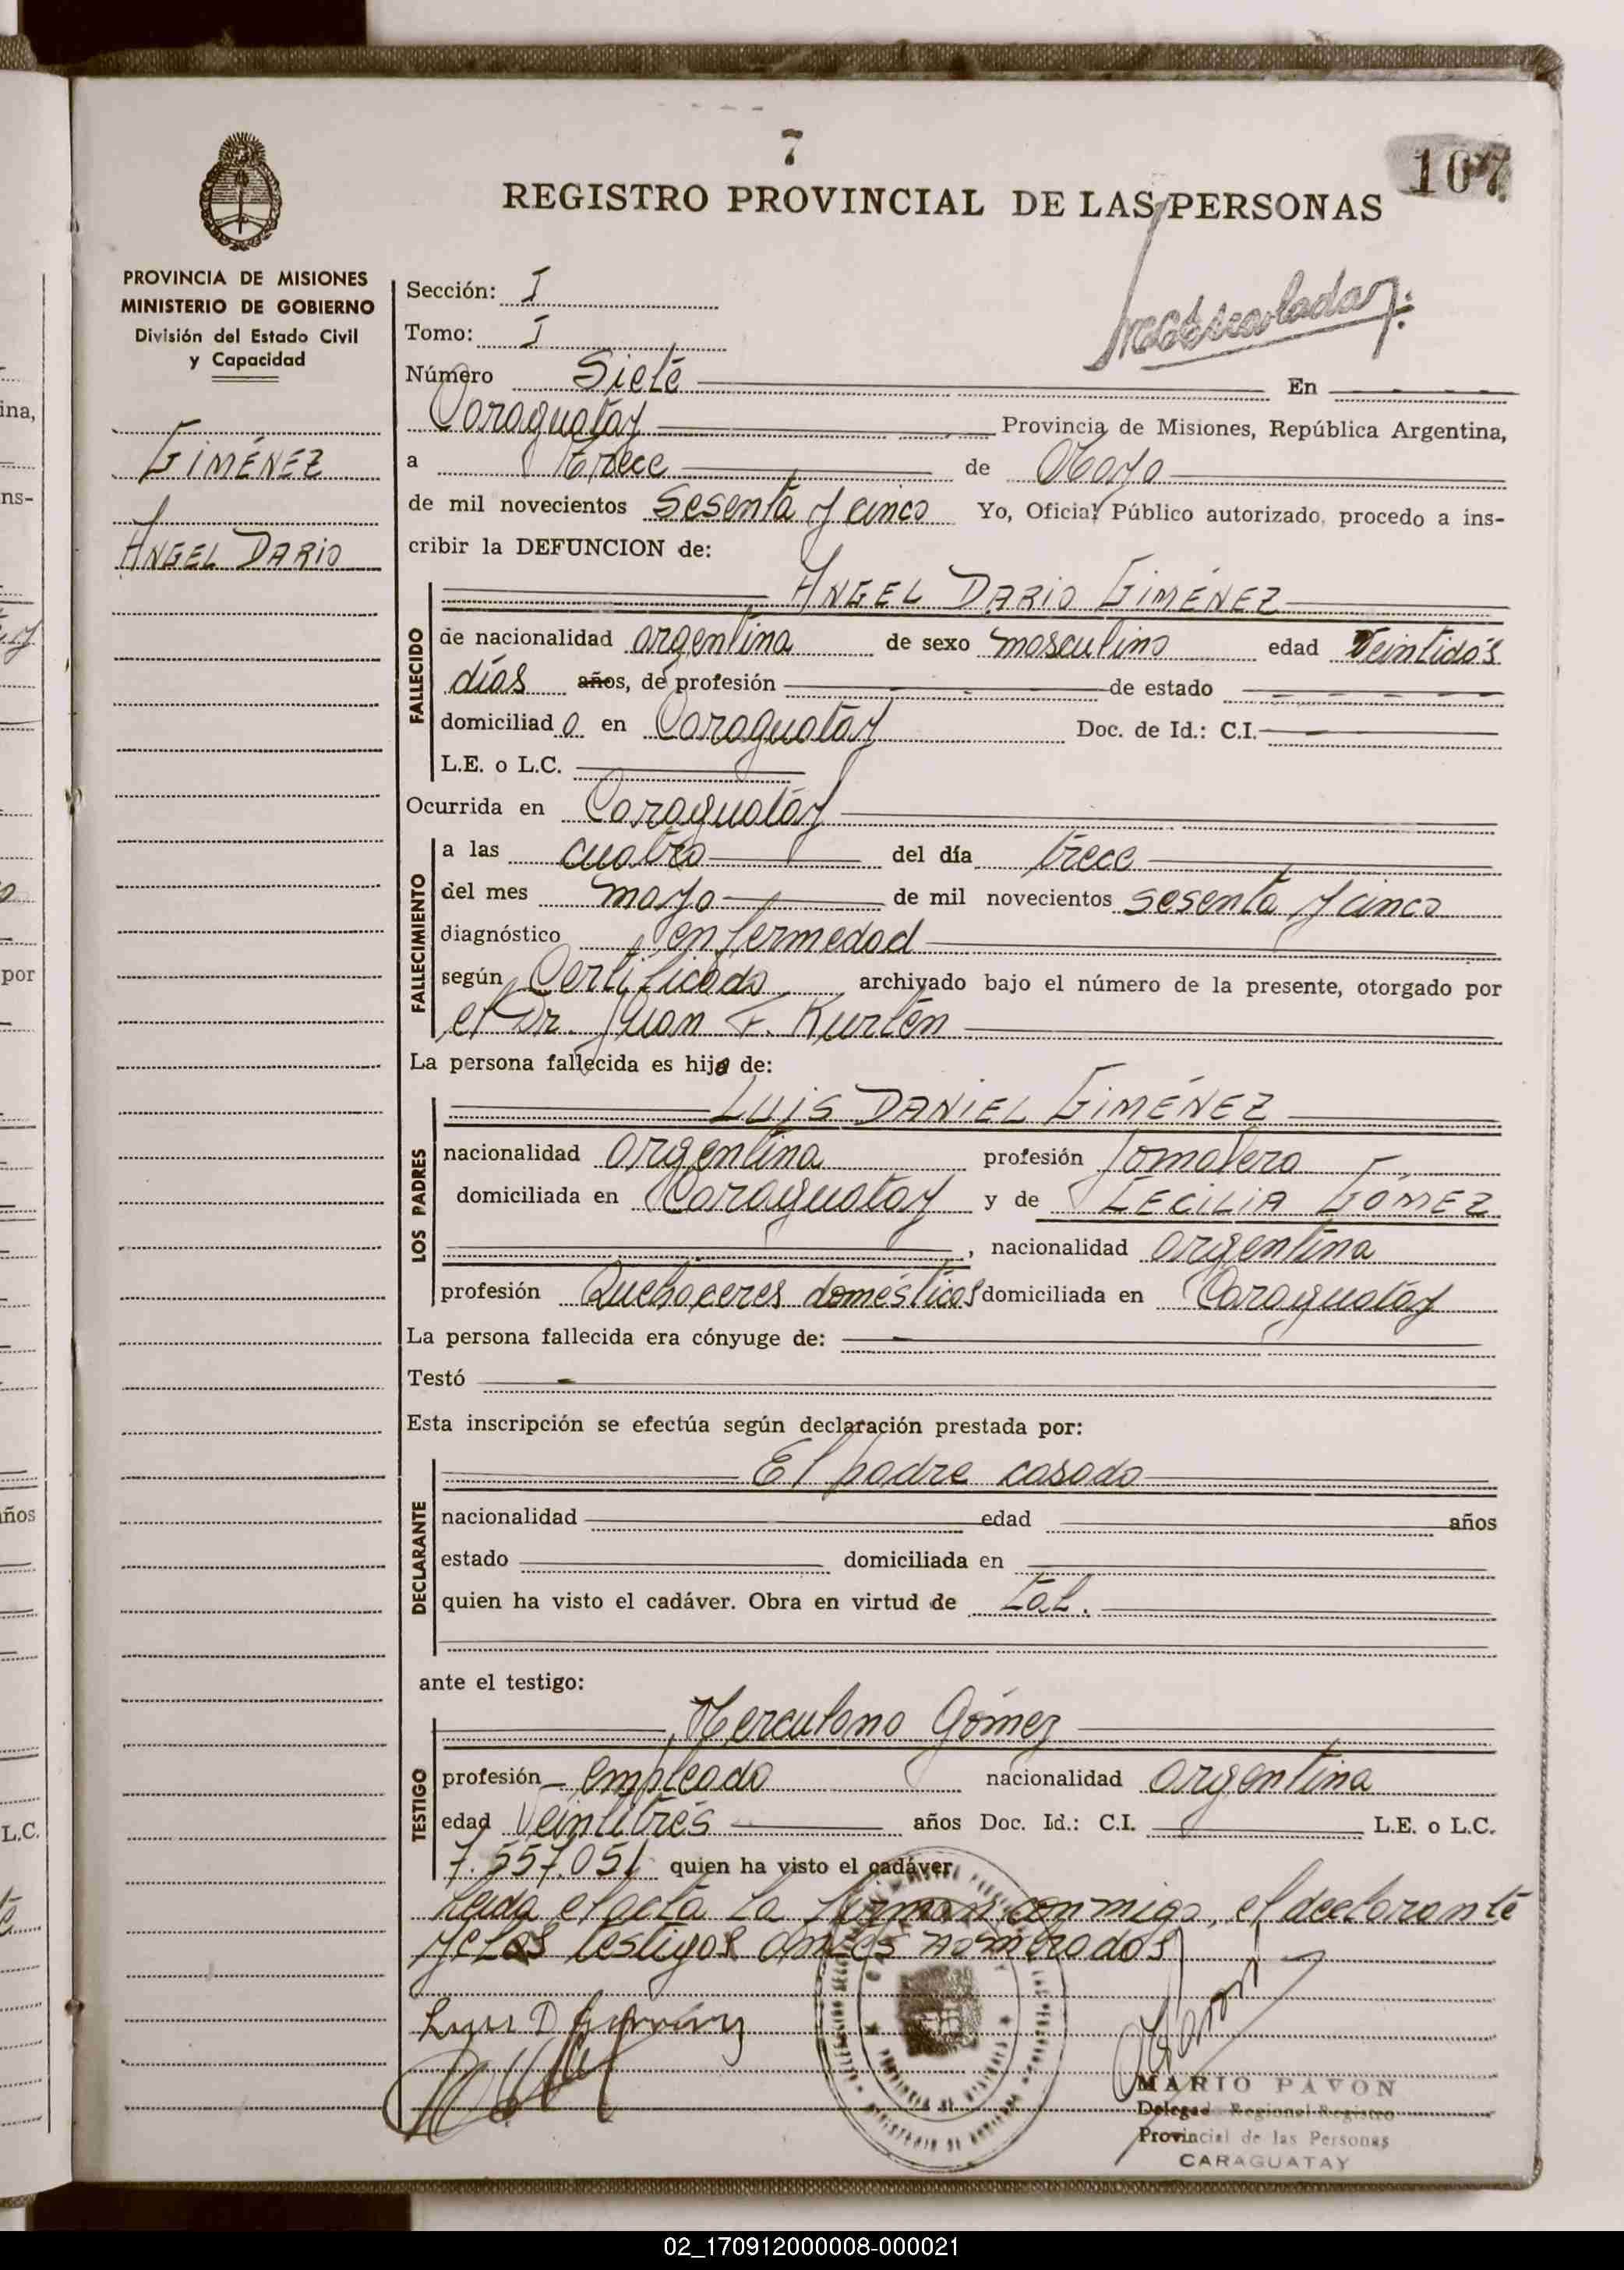 7
107
REGISTRO PROVINCIAL DE LAS PERSONAS
PROVINCIA DE MISIONES
MINISTERIO DE GOBIERNO
División del Estado Civil
y Capacidad
GIMÉNEZ
ANGEL DARIO
Sección: I
Tomo: I
Número Siete En
Caraguatay Provincia de Misiones, República Argentina,
a trece de Mayo
de mil novecientos sesenta y cinco Yo, Oficial Público autorizado, procedo a ins-
cribir la DEFUNCION de:
ANGEL DARIO GIMÉNEZ
FALLECIDO
de nacionalidad argentina de sexo masculino edad veintidós
días años, de profesión de estado
domiciliad o en Caraguatay Doc. de Id.: C.I.
L.E. o L.C.
Ocurrida en Caraguatay
FALLECIMIENTO
a las cuatro del día trece
del mes mayo de mil novecientos sesenta y cinco
diagnóstico enfermedad
según Certificado archivado bajo el número de la presente, otorgado por
el Dr. Juan F. Kurten
La persona fallecida es hijo de:
LOS PADRES
LUIS DANIEL GIMÉNEZ
nacionalidad argentina profesión Jornalero
domiciliada en Caraguatay y de CECILIA GÓMEZ
, nacionalidad argentina
profesión Quehaceres domésticos domiciliada en Caraguatay
La persona fallecida era cónyuge de:
Testó
Esta inscripción se efectúa según declaración prestada por:
DECLARANTE
El padre casado
nacionalidad edad años
estado domiciliada en
quien ha visto el cadáver. Obra en virtud de tal.
ante el testigo:
TESTIGO
Herculano Gómez
profesión empleado nacionalidad argentina
edad Veintitrés años Doc. Id.: C.I. L.E. o L.C.
7.557.051 quien ha visto el cadáver.
Leida el acta la firman conmigo, el declarante
y los testigos antes nombrados
MARIO PAVON
Delegado Regional Registro
Provincial de las Personas
CARAGUATAY
02_170912000008-000021